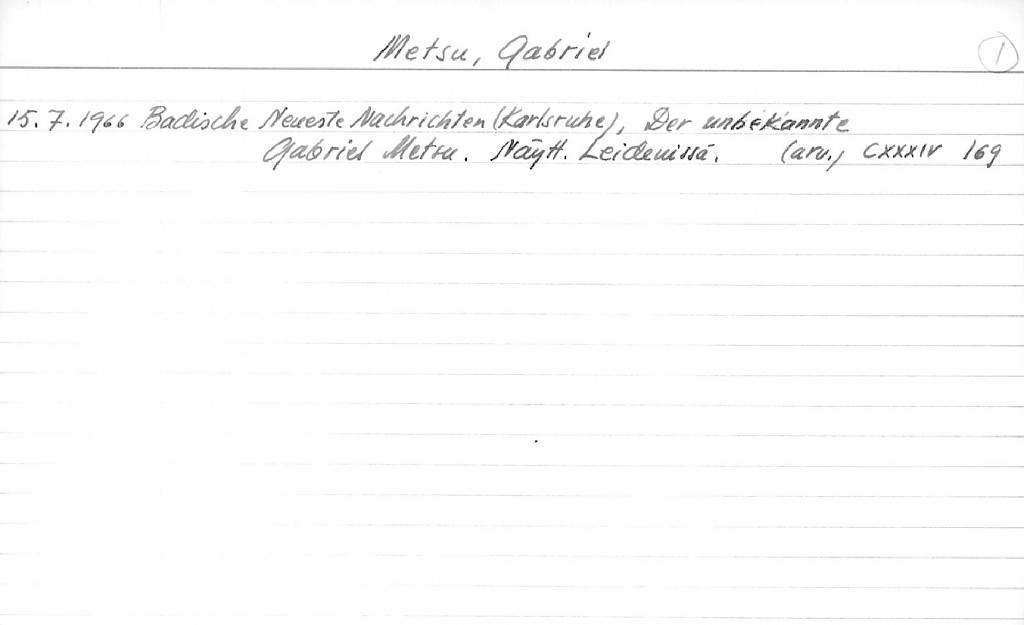 Metsu, Gabriel
1
15.7.1966 Badische Neueste Nachrichten (Karlsruhe), Der unbekannte
Gabriel Metsu. Näytt. Leidenissä. (arv.) CXXXIV 169